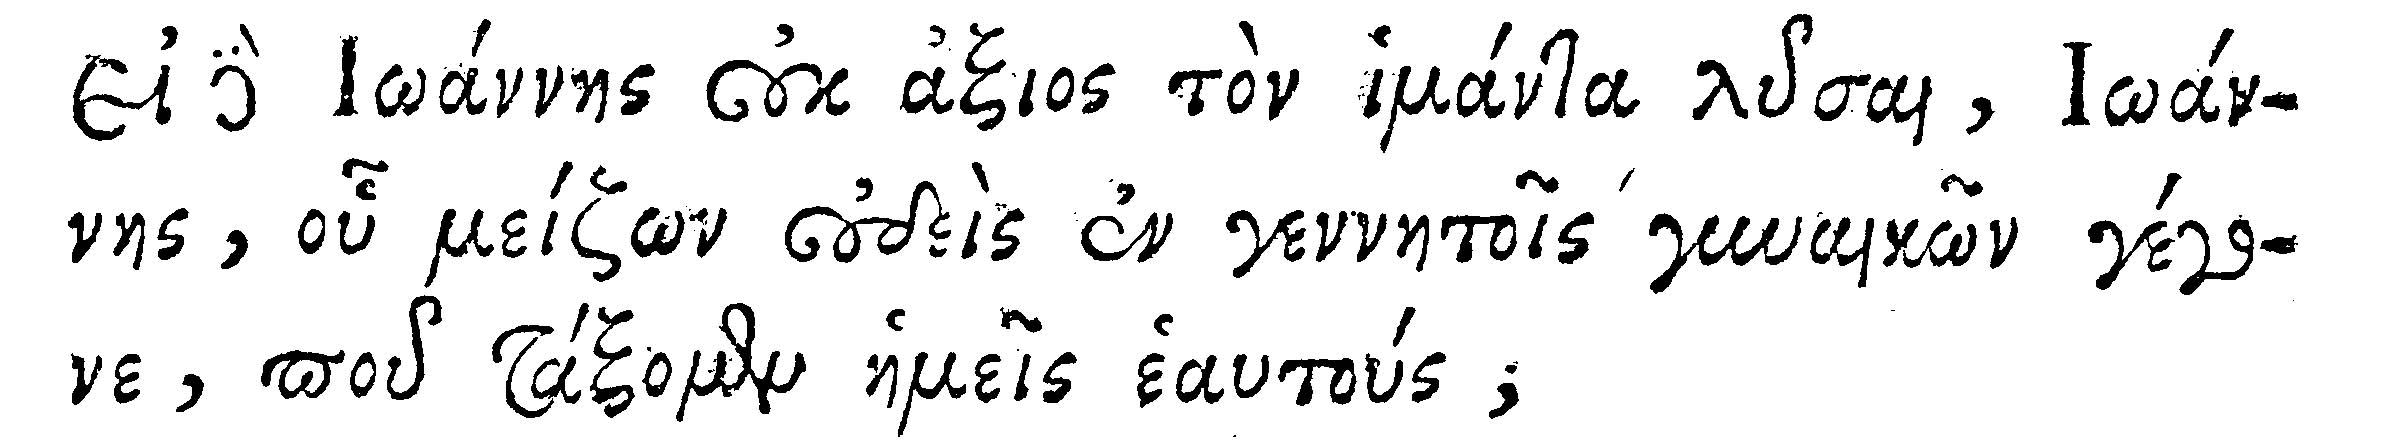 Εἰ δὲ Ἰωάννης οὐκ ἄξιος τὸν ἱμάντα λῦσαι, Ἰωάν-
νης, οὗ μείζων οὐδεὶς ἐν γεννητοῖς γυναικῶν γέγο-
νε, ποῦ τάξομεν ἡμεῖς ἑαυτούς;